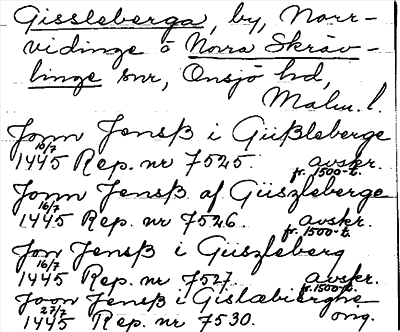 Gissleberga, by, Norr-
vidinge o Norra Skräv-
linge snr, Onsjö hd,
Malm. l.
Jonn Jensß i Güßleberge
1445 16/7 Rep. nr 7525 avskr. fr. 1500-t.
Jonn Jensß af Güszleberge
1445 16/7 Rep. nr 7526 avskr. fr. 1500-t.
Jon Jensß i Güszleberg
1445 16/7 Rep. nr 7527 avskr. fr. 1500-t.
Joon Jensß i Gislæbierghe
1445 27/7 Rep. nr 7530. orig.